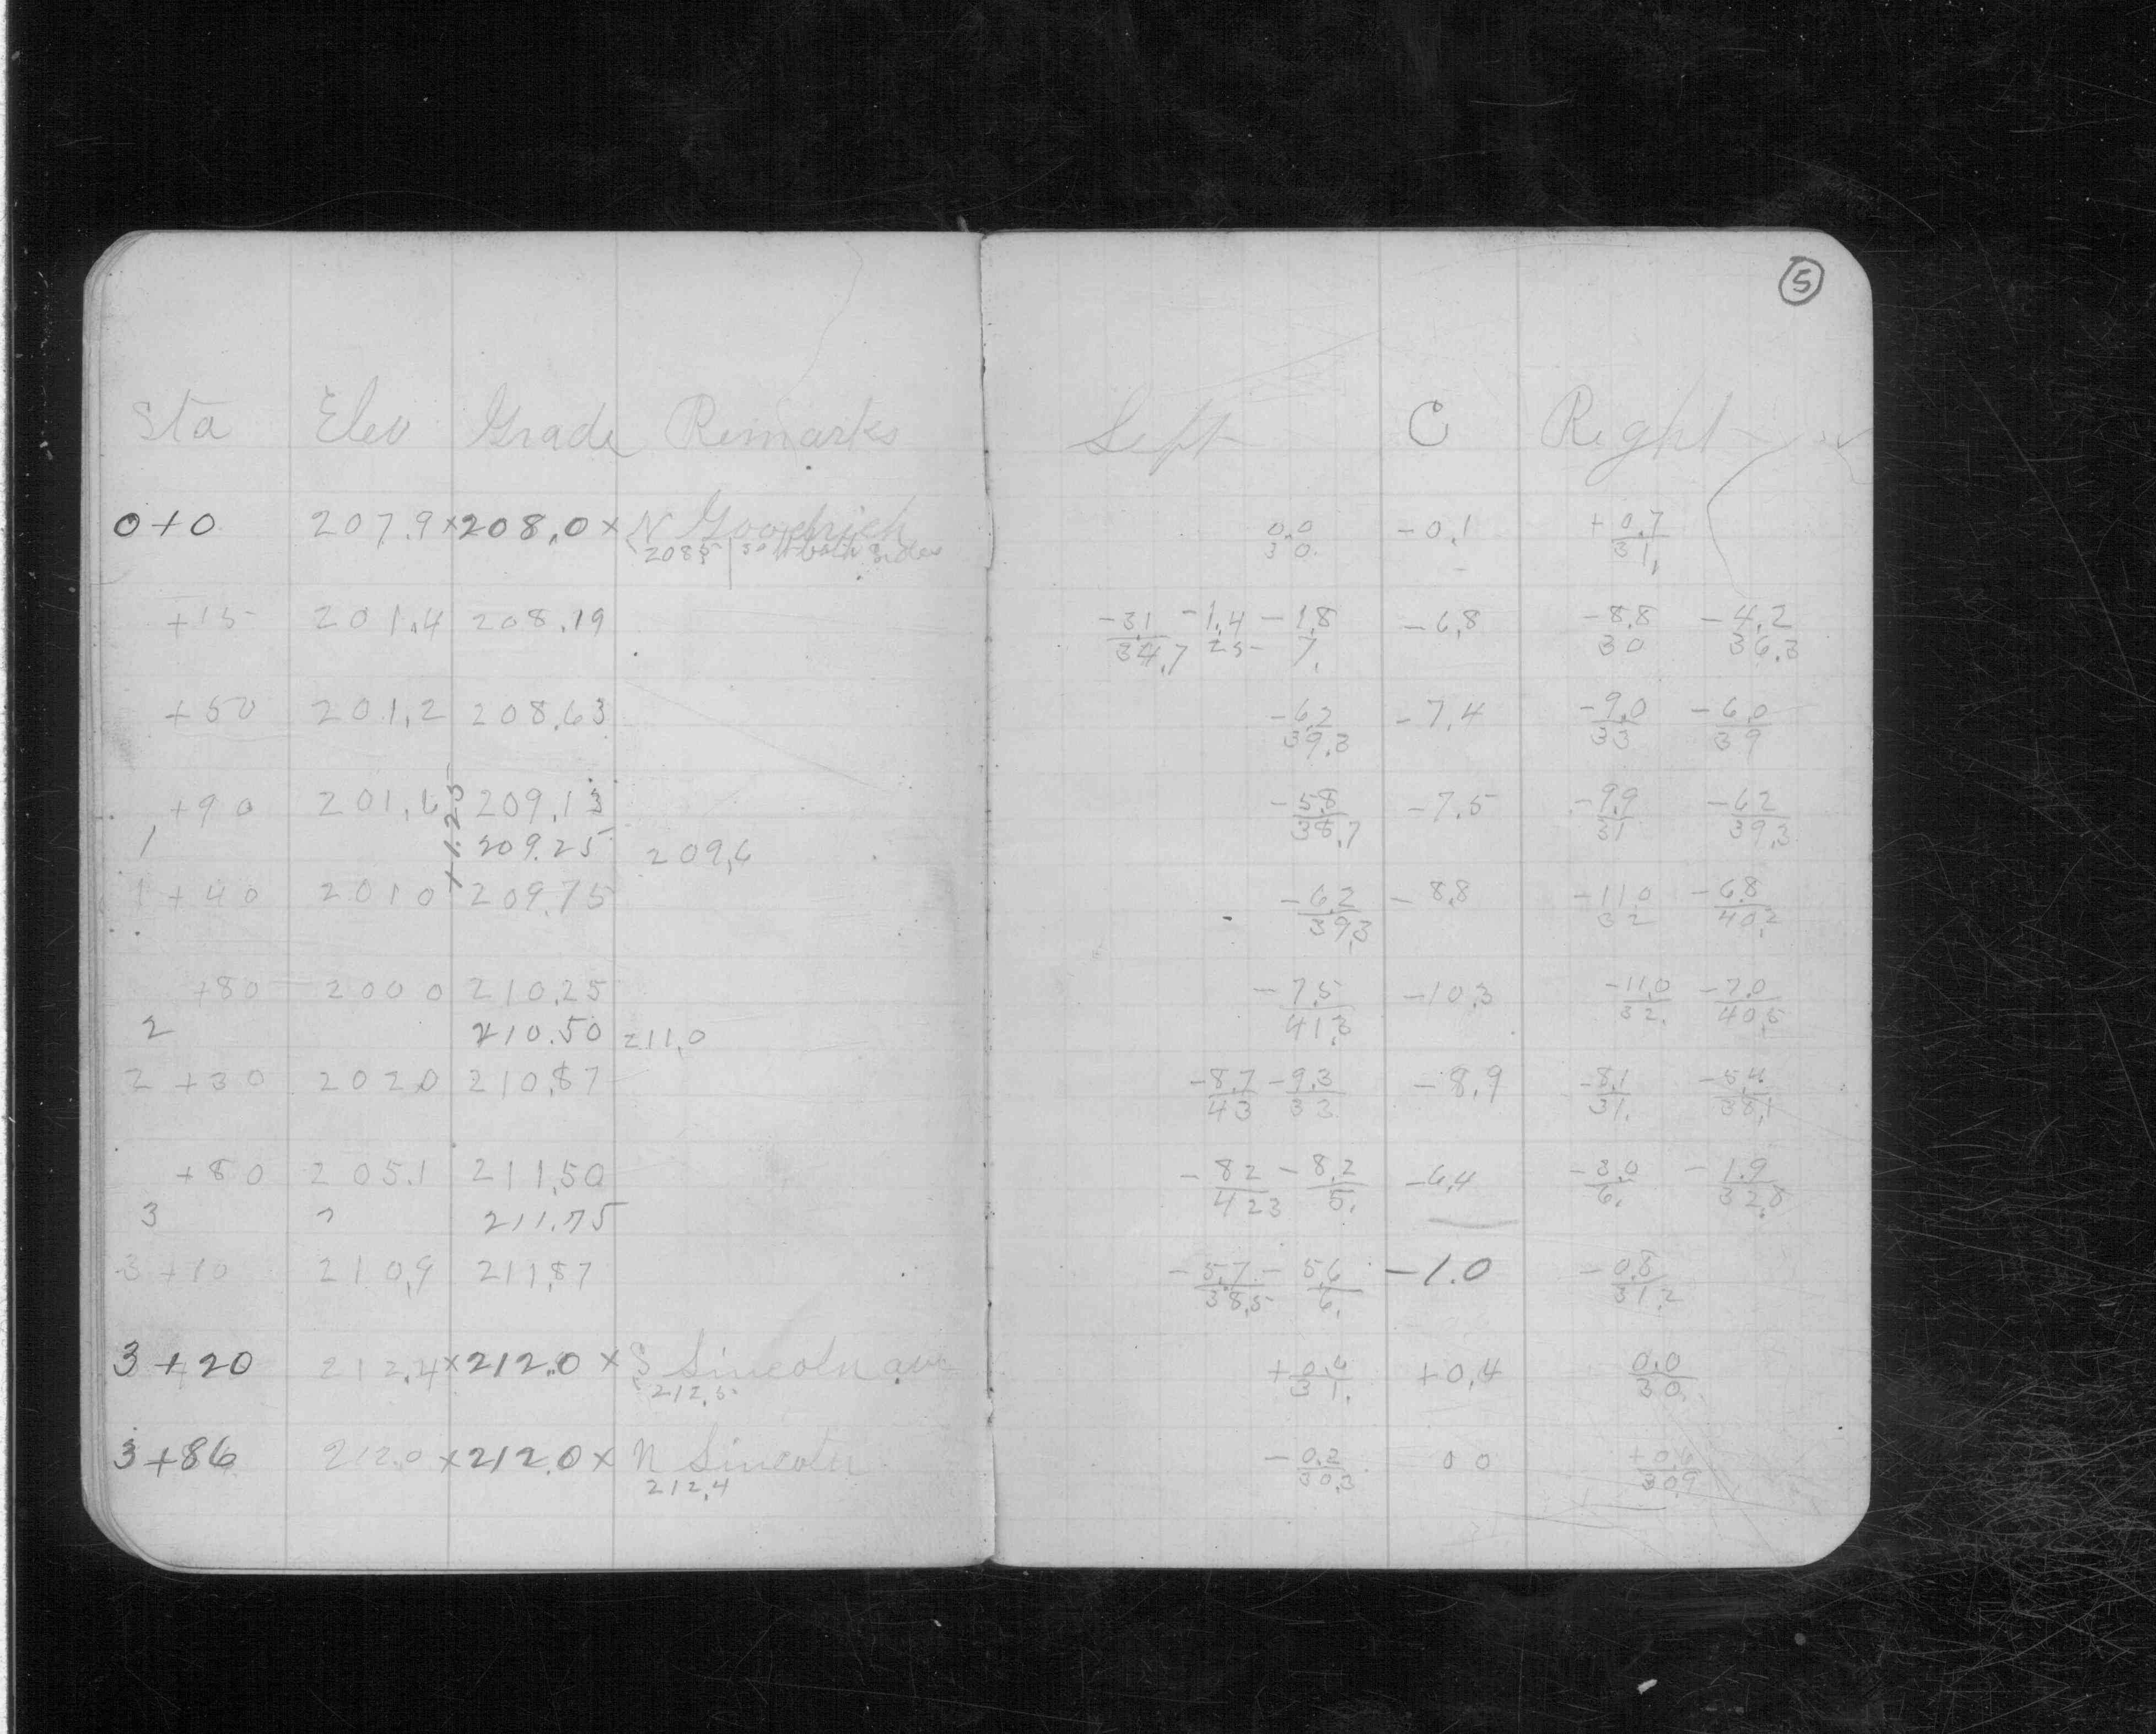 5
Sta Elev Grade Remarks Left C Right
0+0 207.9 x 208.0 x N Goodrich 0.0 -0.1 +0.7
208.5 both sides 30. 31.
+15 201.4 208.19 -3.1 -1.4 -1.8 -6.8 -8.8 -4.2
34.7 25 7. 30 36.3
+50 201.2 208.63 -6.2 -7.4 -9.0 -6.0
39.3 33 39
+90 201.6 209.13 -5.8 -7.5 -9.9 -6.2
38.7 31 39.3
+1.25
1 209.25 209.6
1+40 201 0 209.75 -6.2 -8.8 -11.0 -6.8
39.3 32 40.2
+80 200 0 210.25 -7.5 -10.3 -11.0 -7.0
41.3 32. 40.5
2 210.50 211.0
2+30 202.0 210.87 -8.7 -9.3 -8.9 -8.1 -5.4
43 33 31. 38.1
+80 205.1 211.50 -8.2 -8.2 -6.4 -3.0 -1.9
42 3 5. 6. 32.8
3 ? 211.75
3+10 210.9 211.87 -5.7 -5.6 -1.0 -0.8
38.5 6. 31.2
3+20 212.4 x 212.0 x S Lincoln ave +0.4 0.0
212.5 31. 30.
3+86 212.0 x 212.0 x N Lincoln -0.2 0 0 +0.6
212.4 30.3 30.9